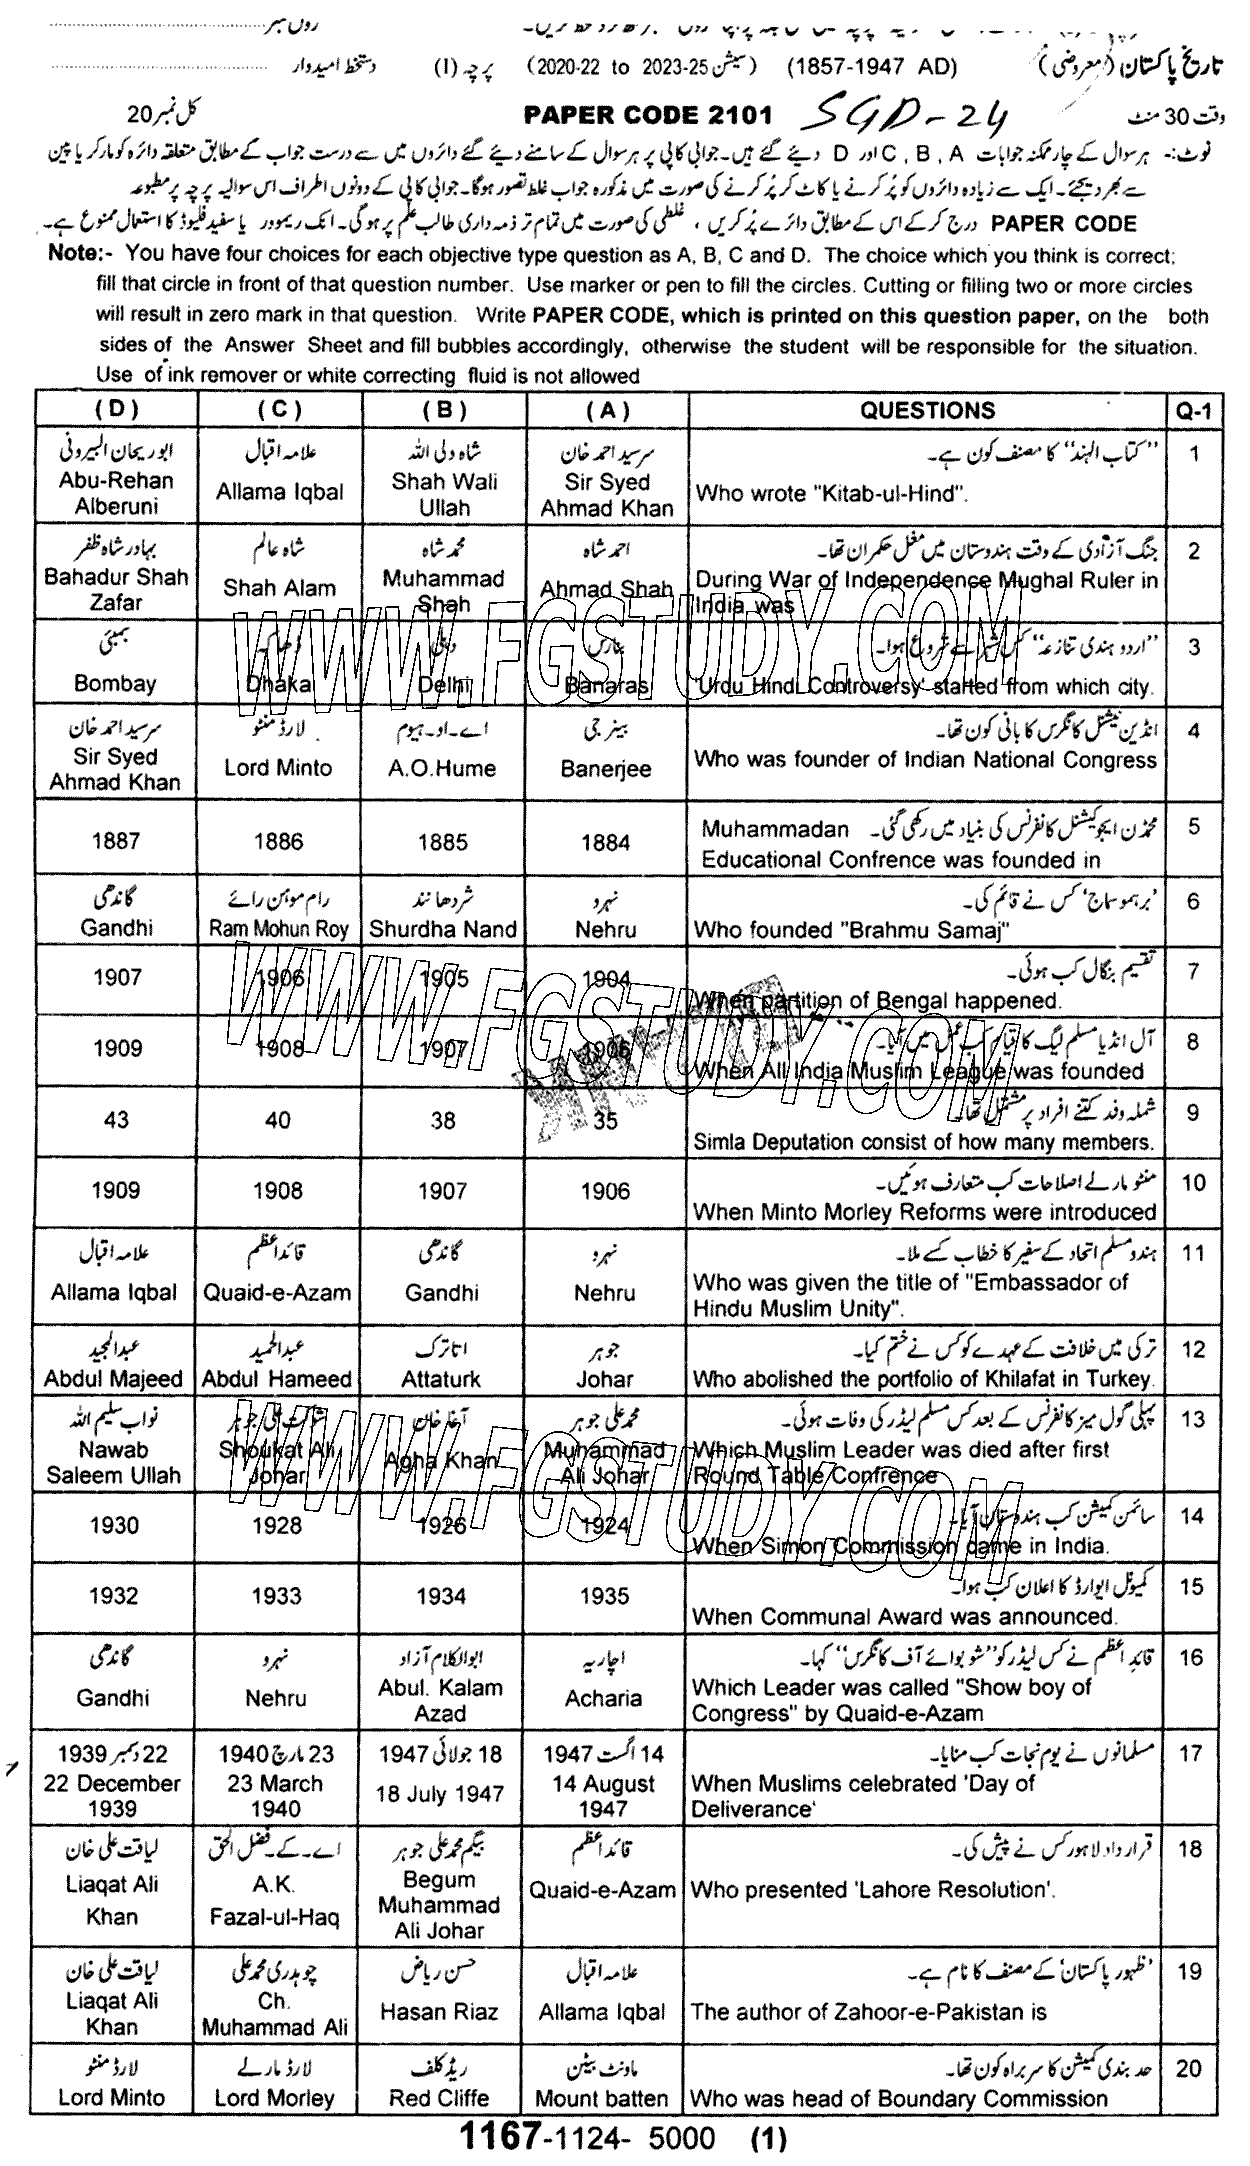 رول نمبر
تاریخ پاکستان (معروضی) (1857-1947 AD) (سیشن 2020-22 to 2023-25) پرچہ (I) دستخط امیدوار
وقت 30 منٹ SGD-24 PAPER CODE 2101 کل نمبر 20
نوٹ:- ہر سوال کے چار ممکنہ جوابات A , B , C اور D دیئے گئے ہیں۔ جوابی کاپی پر ہر سوال کے سامنے دیئے گئے دائروں میں سے درست جواب کے مطابق متعلقہ دائرہ کو مارکر یا پین
سے بھر دیجئے۔ ایک سے زیادہ دائروں کو پُر کرنے یا کاٹ کر پُر کرنے کی صورت میں مذکورہ جواب غلط تصور ہوگا۔ جوابی کاپی کے دونوں اطراف اس سوالیہ پرچہ پر مطبوعہ
PAPER CODE درج کرکے اس کے مطابق دائرے پُر کریں ، غلطی کی صورت میں تمام تر ذمہ داری طالب علم پر ہوگی۔ انک ریموور یا سفید فلیوڈ کا استعمال ممنوع ہے۔
Note:- You have four choices for each objective type question as A, B, C and D. The choice which you think is correct;
fill that circle in front of that question number. Use marker or pen to fill the circles. Cutting or filling two or more circles
will result in zero mark in that question. Write PAPER CODE, which is printed on this question paper, on the both
sides of the Answer Sheet and fill bubbles accordingly, otherwise the student will be responsible for the situation.
Use of ink remover or white correcting fluid is not allowed
(D) (C) (B) (A) QUESTIONS Q-1
ابو ریحان البیرونی علامہ اقبال شاہ ولی اللہ سر سید احمد خان ”کتاب الہند“ کا مصنف کون ہے۔ 1
Abu-Rehan Alberuni Allama Iqbal Shah Wali Ullah Sir Syed Ahmad Khan Who wrote "Kitab-ul-Hind".
بہادر شاہ ظفر شاہ عالم محمد شاہ احمد شاہ جنگ آزادی کے وقت ہندوستان میں مغل حکمران تھا۔ 2
Bahadur Shah Zafar Shah Alam Muhammad Shah Ahmad Shah During War of Independence Mughal Ruler in
India was
بمبئی ڈھاکہ دہلی بنارس ”اردو ہندی تنازعہ“ کس شہر سے شروع ہوا۔ 3
Bombay Dhaka Delhi Banaras 'Urdu Hindi Controversy' started from which city.
سر سید احمد خان لارڈ منٹو اے۔او۔ہیوم بینرجی انڈین نیشنل کانگرس کا بانی کون تھا۔ 4
Sir Syed Ahmad Khan Lord Minto A.O.Hume Banerjee Who was founder of Indian National Congress
1887 1886 1885 1884 محمڈن ایجوکیشنل کانفرنس کی بنیاد میں رکھی گئی۔ Muhammadan 5
Educational Confrence was founded in
گاندھی رام موہن رائے شردھا نند نہرو ’برہمو سماج‘ کس نے قائم کی۔ 6
Gandhi Ram Mohun Roy Shurdha Nand Nehru Who founded "Brahmu Samaj"
1907 1906 1905 1904 تقسیم بنگال کب ہوئی۔ 7
When partition of Bengal happened.
1909 1908 1907 1906 آل انڈیا مسلم لیگ کا قیام کب عمل میں آیا۔ 8
When All India Muslim League was founded
43 40 38 35 شملہ وفد کتنے افراد پر مشتمل تھا۔ 9
Simla Deputation consist of how many members.
1909 1908 1907 1906 منٹو مارلے اصلاحات کب متعارف ہوئیں۔ 10
When Minto Morley Reforms were introduced
علامہ اقبال قائداعظم گاندھی نہرو ہندو مسلم اتحاد کے سفیر کا خطاب کسے ملا۔ 11
Allama Iqbal Quaid-e-Azam Gandhi Nehru Who was given the title of "Embassador of
Hindu Muslim Unity".
عبدالمجید عبدالحمید اتاترک جوہر ترکی میں خلافت کے عہدے کو کس نے ختم کیا۔ 12
Abdul Majeed Abdul Hameed Attaturk Johar Who abolished the portfolio of Khilafat in Turkey.
نواب سلیم اللہ شوکت علی جوہر آغا خان محمد علی جوہر پہلی گول میز کانفرنس کے بعد کس مسلم لیڈر کی وفات ہوئی۔ 13
Nawab Saleem Ullah Shoukat Ali Johar Agha Khan Muhammad Ali Johar Which Muslim Leader was died after first
Round Table Confrence
1930 1928 1926 1924 سائمن کمیشن کب ہندوستان آیا۔ 14
When Simon Commission came in India.
1932 1933 1934 1935 کمیونل ایوارڈ کا اعلان کب ہوا۔ 15
When Communal Award was announced.
گاندھی نہرو ابوالکلام آزاد اچاریہ قائد اعظم نے کس لیڈر کو ”شو بوائے آف کانگرس“ کہا۔ 16
Gandhi Nehru Abul. Kalam Azad Acharia Which Leader was called "Show boy of
Congress" by Quaid-e-Azam
22 دسمبر 1939 23 مارچ 1940 18 جولائی 1947 14 اگست 1947 مسلمانوں نے یوم نجات کب منایا۔ 17
22 December 1939 23 March 1940 18 July 1947 14 August 1947 When Muslims celebrated 'Day of
Deliverance'
لیاقت علی خان اے۔کے۔فضل الحق بیگم محمد علی جوہر قائداعظم قرار داد لاہور کس نے پیش کی۔ 18
Liaqat Ali Khan A.K. Fazal-ul-Haq Begum Muhammad Ali Johar Quaid-e-Azam Who presented 'Lahore Resolution'.
لیاقت علی خان چوہدری محمد علی حسن ریاض علامہ اقبال ’ظہور پاکستان‘ کے مصنف کا نام ہے۔ 19
Liaqat Ali Khan Ch. Muhammad Ali Hasan Riaz Allama Iqbal The author of Zahoor-e-Pakistan is
لارڈ منٹو لارڈ مارلے ریڈ کلف ماونٹ بیٹن حد بندی کمیشن کا سربراہ کون تھا۔ 20
Lord Minto Lord Morley Red Cliffe Mount batten Who was head of Boundary Commission
1167-1124- 5000 (1)
WWW.FGSTUDY.COM
WWW.FGSTUDY.COM
WWW.FGSTUDY.COM